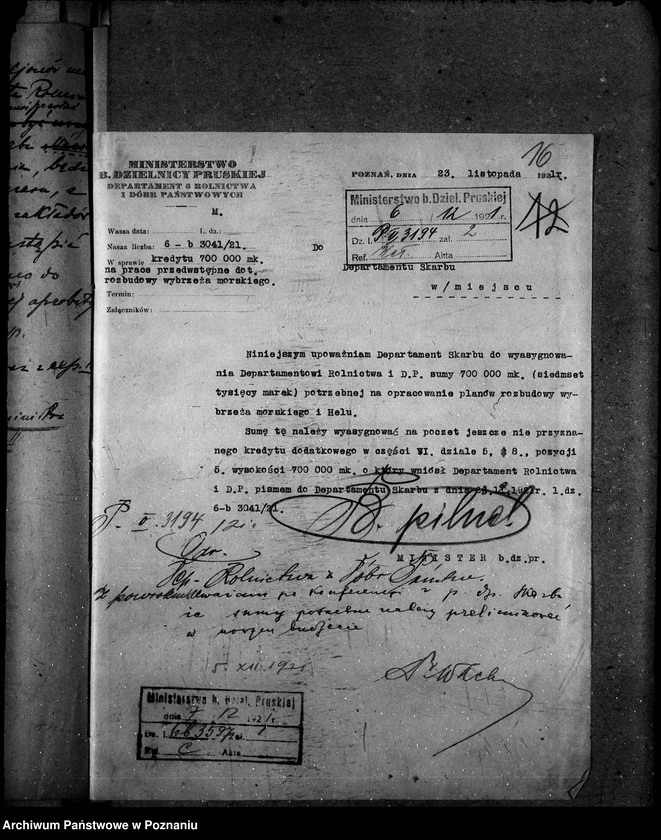 16
MINISTERSTWO
B. DZIELNICY PRUSKIEJ
DEPARTAMENT 6 ROLNICTWA
I DÓBR PAŃSTWOWYCH
M.
POZNAŃ, DNIA 23. listopada 1921r.
Ministerstwo b. Dziel. Pruskiej
dnia 6 / 12 1921 r.
Dz. l. P II 3194 zał. 2
Ref. Akta
12
Wasza data: L. dz.:
Nasza liczba: 6 - b 3041/21.
W sprawie kredytu 700 000 mk.
na prace przedwstępne dot.
rozbudowy wybrzeża morskiego.
Termin:
Załączników:
Do
Departamentu Skarbu
w/miejscu
Niniejszym upoważniam Departament Skarbu do wyasygnowa-
nia Departamentowi Rolnictwa i D.P. sumy 700 000 mk. (siedmset
tysięcy marek) potrzebnej na opracowanie planów rozbudowy wy-
brzeża morskiego i Helu.
Sumę tę należy wyasygnować na poczet jeszcze nie przyzna-
nego kredytu dodatkowego w części VI. dziale 5, § 8., pozycji
5. wysokości 700 000 mk. o który wniósł Departament Rolnictwa
i D.P. pismem do Departamentu Skarbu z dnia 1921r. l.dz.
6-b 3041/21.
B. pilne!
P. II. 3194/21.
MINISTER b.dz.pr.
Dep. Rolnictwa i Dóbr Państw.
z po konferencji z p. dyr.
iż sumy potrzebne należy preliminować
w nowym budżecie
5. XII. 1921
Ministerstwo b. Dziel. Pruskiej
dnia 7 12 1921 r.
Dz. l. 6b 3597 zał. 1
Ref. C Akta
Archiwum Państwowe w Poznaniu